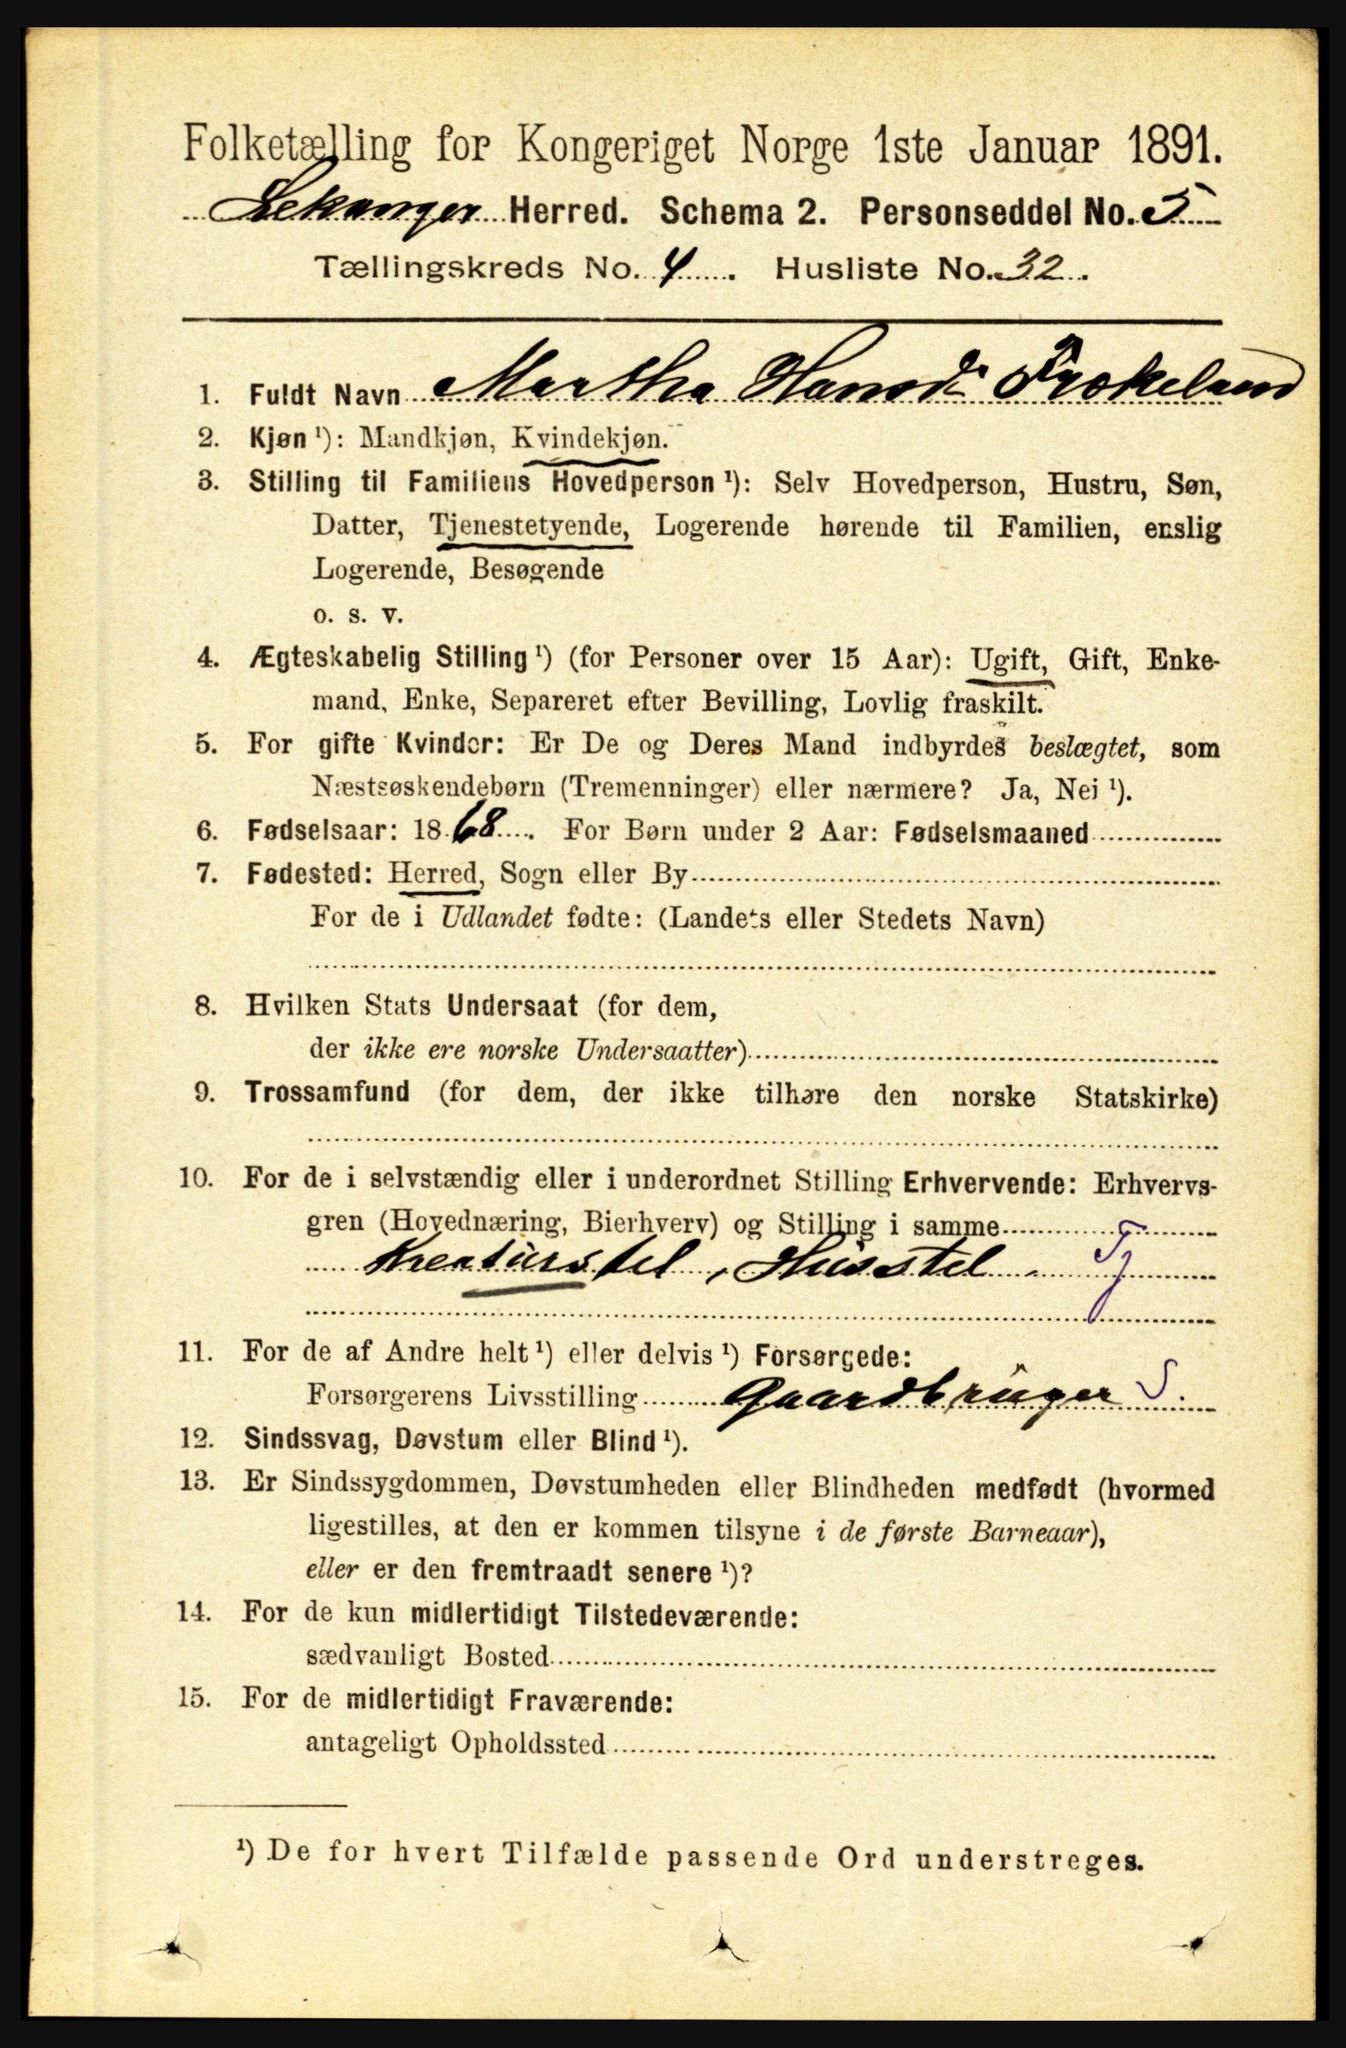 Folketælling for Kongeriget Norge 1ste Januar 1891.
Lekanger Herred. Schema 2. Personseddel No. 5
Tællingskreds No. 4. Husliste No. 32.
1. Fuldt Navn Martha Hansd. Frøkeland
2. Kjøn ¹): Mandkjøn, Kvindekjøn.
3. Stilling til Familiens Hovedperson ¹): Selv Hovedperson, Hustru, Søn,
Datter, Tjenestetyende, Logerende hørende til Familien, enslig
Logerende, Besøgende
o. s. v.
4. Ægteskabelig Stilling ¹) (for Personer over 15 Aar): Ugift, Gift, Enke-
mand, Enke, Separeret efter Bevilling, Lovlig fraskilt.
5. For gifte Kvinder: Er De og Deres Mand indbyrdes beslægtet, som
Næstsøskendebørn (Tremenninger) eller nærmere? Ja, Nei ¹).
6. Fødselsaar: 1868. For Børn under 2 Aar: Fødselsmaaned
7. Fødested: Herred, Sogn eller By
For de i Udlandet fødte: (Landets eller Stedets Navn)
8. Hvilken Stats Undersaat (for dem,
der ikke ere norske Undersaatter)
9. Trossamfund (for dem, der ikke tilhøre den norske Statskirke)
10. For de i selvstændig eller i underordnet Stilling Erhvervende: Erhvervs-
gren (Hovednæring, Bierhverv) og Stilling i samme
Kreaturstel, Husstel. Tj
11. For de af Andre helt ¹) eller delvis ¹) Forsørgede:
Forsørgerens Livsstilling Gaardbruger S.
12. Sindssvag, Døvstum eller Blind ¹).
13. Er Sindssygdommen, Døvstumheden eller Blindheden medfødt (hvormed
ligestilles, at den er kommen tilsyne i de første Barneaar),
eller er den fremtraadt senere ¹)?
14. For de kun midlertidigt Tilstedeværende:
sædvanligt Bosted
15. For de midlertidigt Fraværende:
antageligt Opholdssted
¹) De for hvert Tilfælde passende Ord understreges.